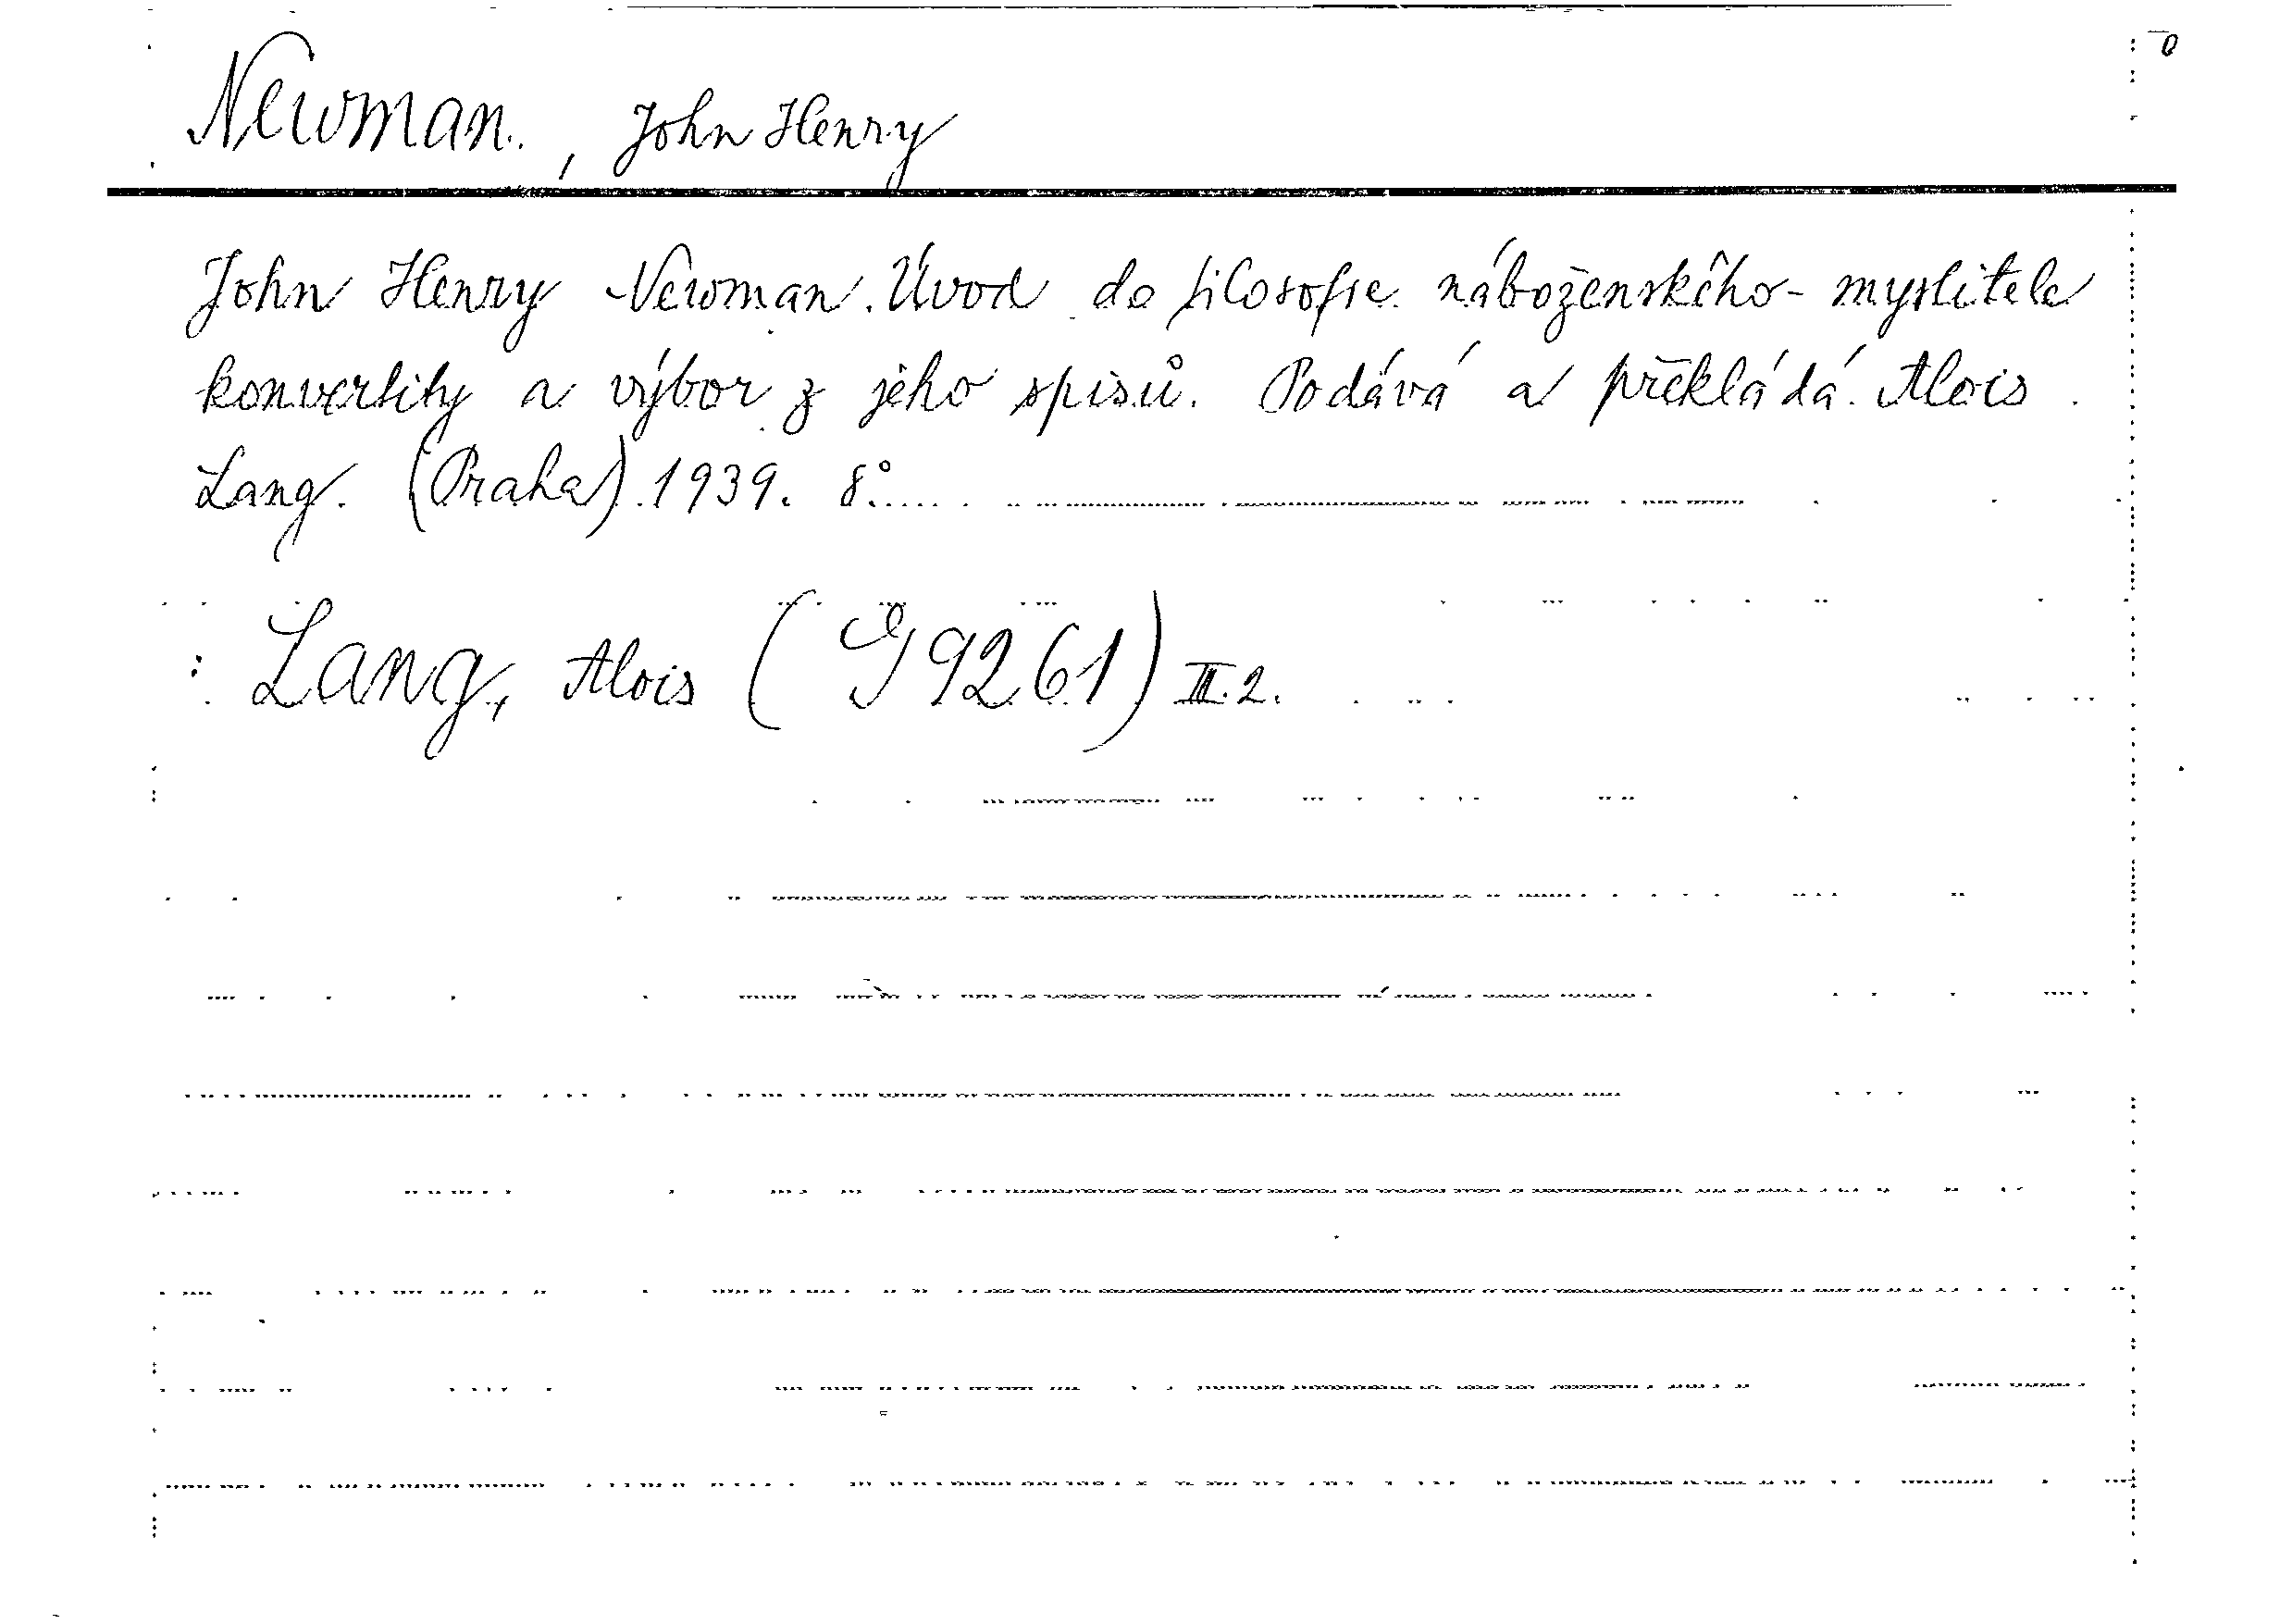 Newman., John Henry
John Henry Newman. Úvod do filosofie náboženského-myslitele
konvertity a výbor z jeho spisů. Podává a překládá Alois
Lang. (Praha) 1939. 8°.
Lang, Alois (J 9261) III.2.